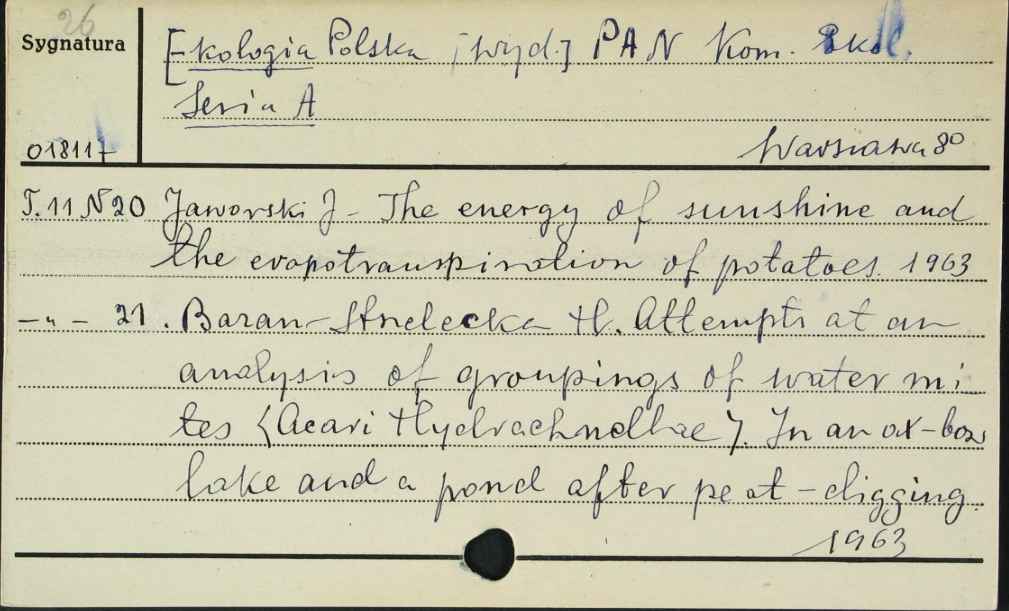 26
Sygnatura
[Ekologia Polska [wyd.] PAN Kom. Ekol.
Seria A
018117
Warszawa 8º
T. 11 N 20 Jaworski J - The energy of sunshine and
the evapotranspiration of potatoes. 1963
-„- 21. Baran-Strzelecka H. Attempts at an
analysis of groupings of water mi
tes (Acari Hydrachnellae). In an ox-bow
lake and a pond after peat-digging.
1963